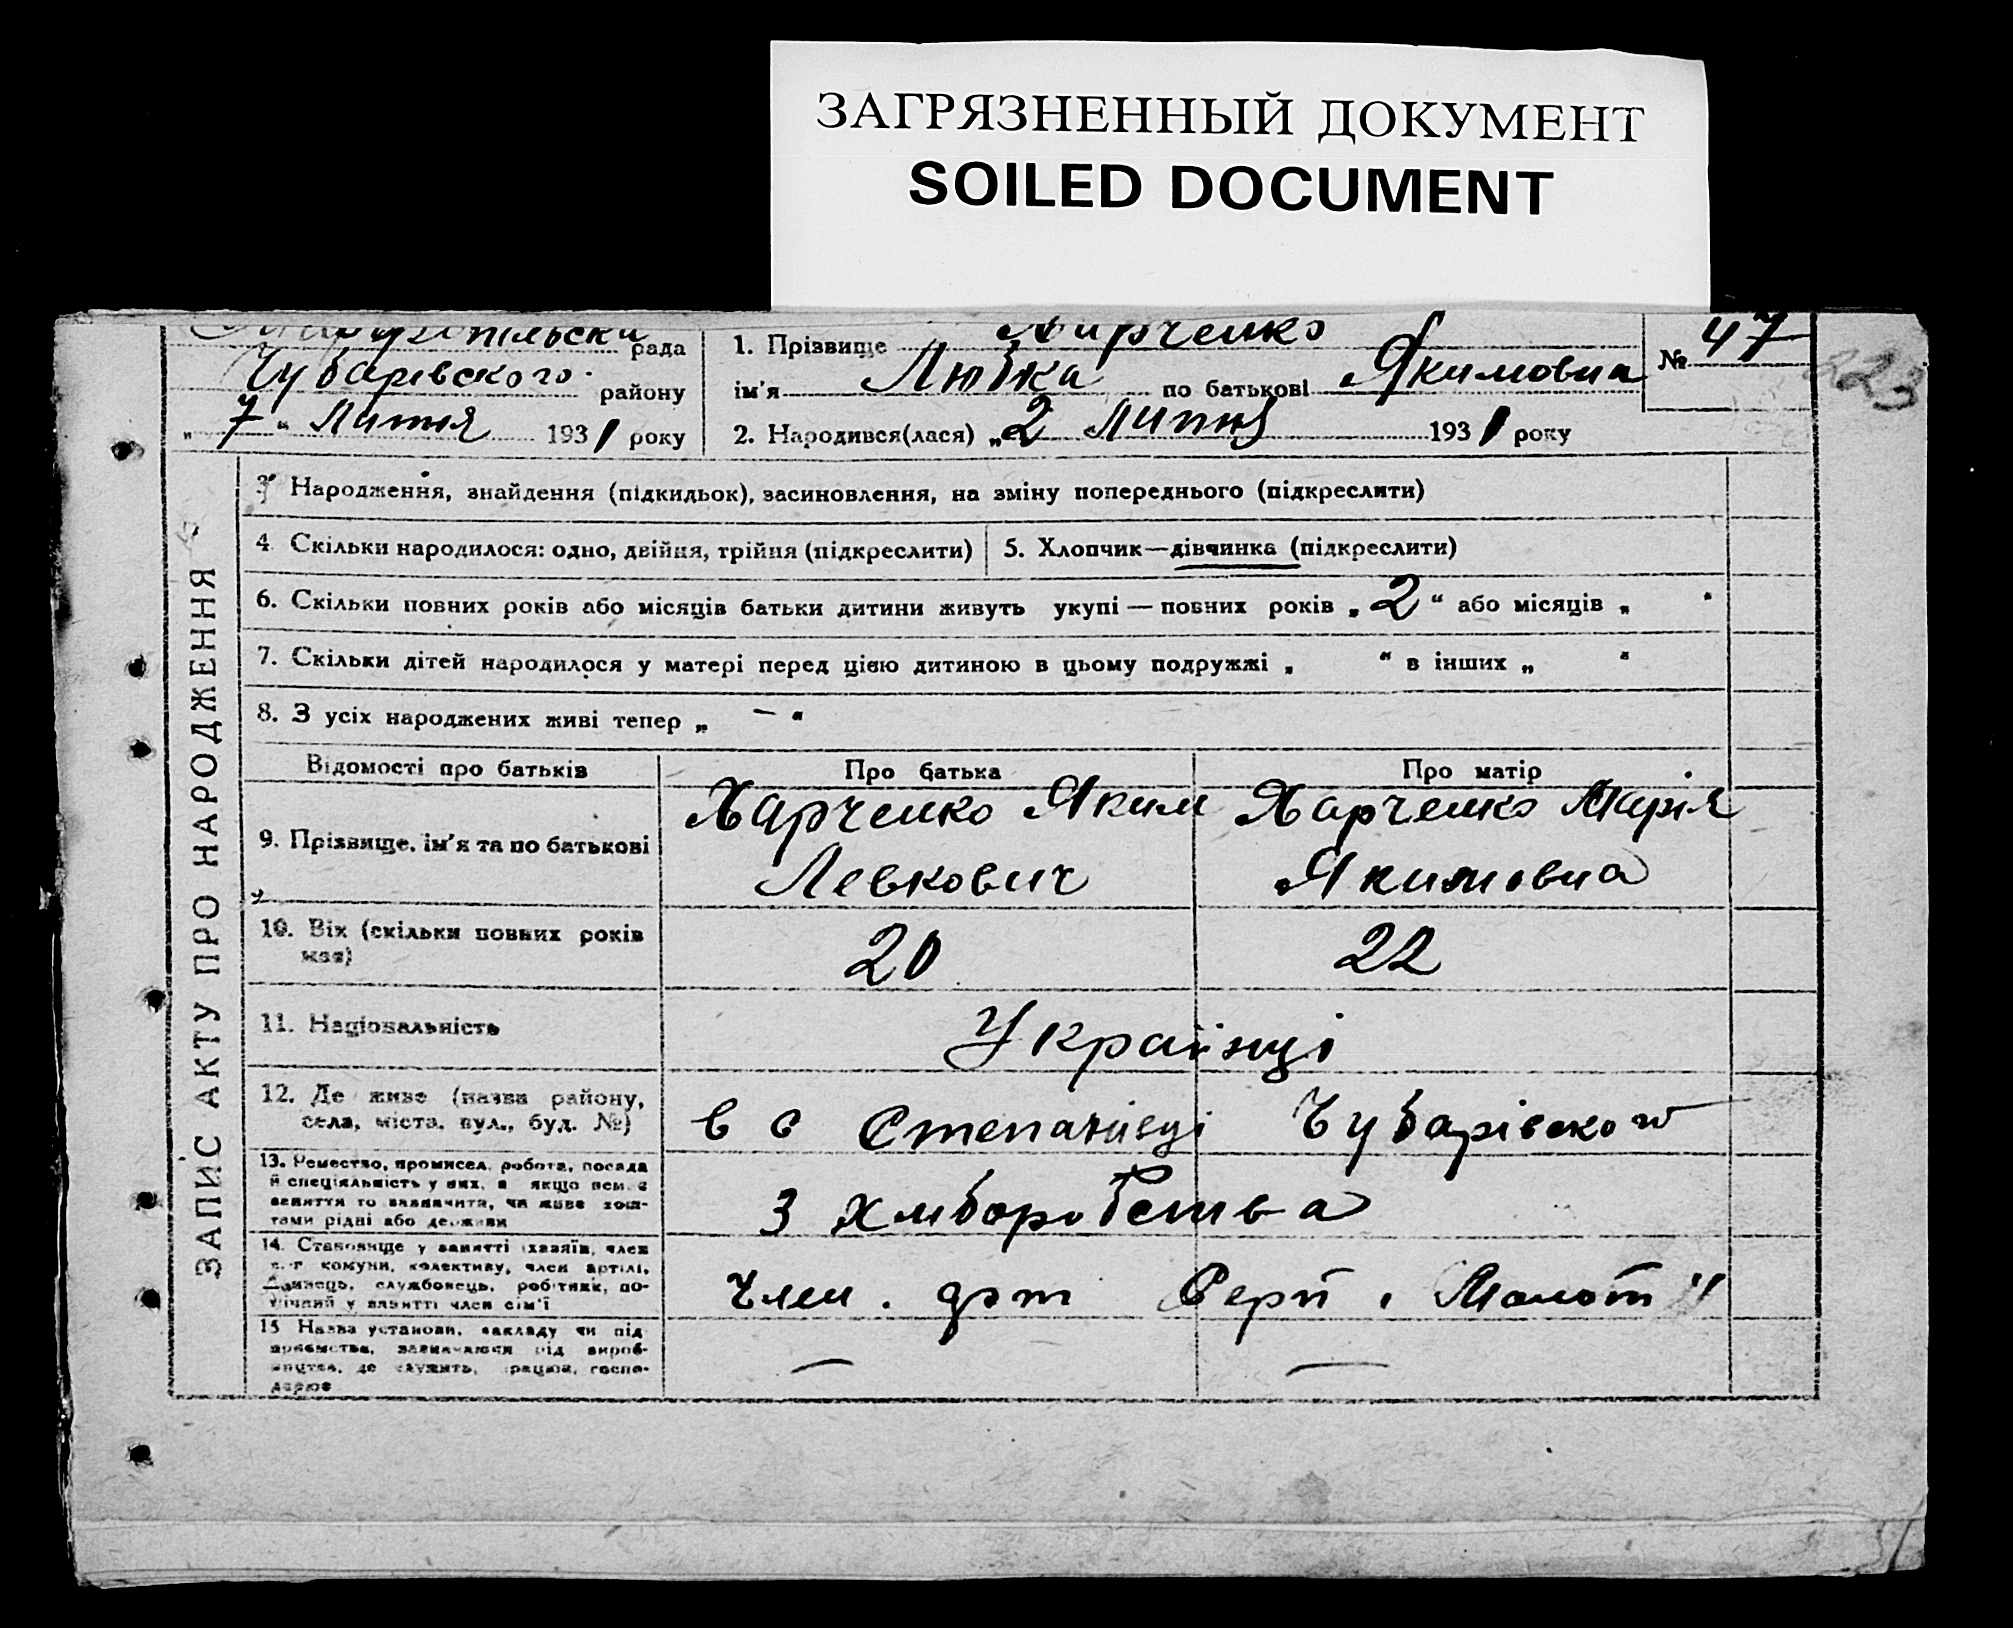 ЗАГРЯЗНЕННЫЙ ДОКУМЕНТ
SOILED DOCUMENT
рада
Чубарівского району
„7“ Липня 1931 року
1. Прізвище Харченко
ім'я Любка по батькові Якимовна
2. Народився(лася) „2 Липня 1931 року
№ 47
223
ЗАПИС АКТУ ПРО НАРОДЖЕННЯ
3. Народження, знайдення (підкидьок), засиновлення, на зміну попереднього (підкреслити)
4. Скільки народилося: одно, двійня, трійня (підкреслити)
5. Хлопчик—дівчинка (підкреслити)
6. Скільки повних років або місяців батьки дитини живуть укупі — повних років „2“ або місяців „ “
7. Скільки дітей народилося у матері перед цією дитиною в цьому подружжі „ “ в інших „ “
8. З усіх народжених живі тепер „ — “
Відомості про батьків
Про батька
Про матір
9. Прізвище, ім'я та по батькові
Харченко Яким
Левкович
Харченко Марія
Якимовна
10. Вік (скільки повних років
має)
20
22
11. Національність
Українці
12. Де живе (назва району,
села, міста, вул., буд. №)
в с Чубарівского
13. Ремество, промисел, робота, посада
й спеціяльність у них, а якщо нема
заняття то зазначити, чи живе кош-
тами рідні або держави
З хліборобства
14. Становище у занятті (хазяїн, член
комуни, колективу, член артілі,
службовець, робітник, по-
у занятті член сім'ї
Член Серп і Молот"
15. Назва установи, закладу чи під
приємства, зазначаючи від вироб-
ництва, де служить, працює, госпо-
дарює
—
—